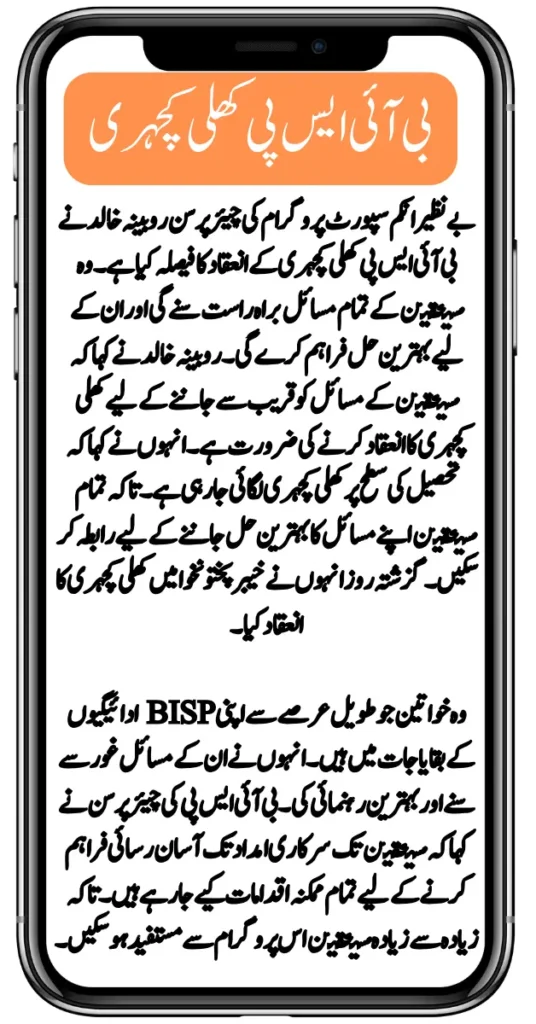 بی آئی ایس پی کھلی کچہری
بے نظیر انکم سپورٹ پروگرام کی چیئرپرسن روبینہ خالد نے
بی آئی ایس پی کھلی کچہری کے انعقاد کا فیصلہ کیا ہے۔ وہ
مستحقین کے تمام مسائل براہ راست سنے گی اور ان کے
لیے بہترین حل فراہم کرے گی۔ روبینہ خالد نے کہا کہ
مستحقین کے مسائل کو قریب سے جاننے کے لیے کھلی
کچہری کا انعقاد کرنے کی ضرورت ہے۔ انہوں نے کہا کہ
تحصیل کی سطح پر کھلی کچہری لگائی جا رہی ہے۔ تاکہ تمام
مستحقین اپنے مسائل کا بہترین حل جاننے کے لیے رابطہ کر
سکیں۔ گزشتہ روز انہوں نے خیبر پختونخوا میں کھلی کچہری کا
انعقاد کیا۔
وہ خواتین جو طویل عرصے سے اپنی BISP ادائیگیوں
کے بقایا جات میں ہیں۔ انہوں نے ان کے مسائل غور سے
سنے اور بہترین رہنمائی کی۔ بی آئی ایس پی کی چیئرپرسن نے
کہا کہ مستحقین تک سرکاری امداد تک آسان رسائی فراہم
کرنے کے لیے تمام ممکنہ اقدامات کیے جا رہے ہیں۔ تاکہ
زیادہ سے زیادہ مستحقین اس پروگرام سے مستفید ہو سکیں۔